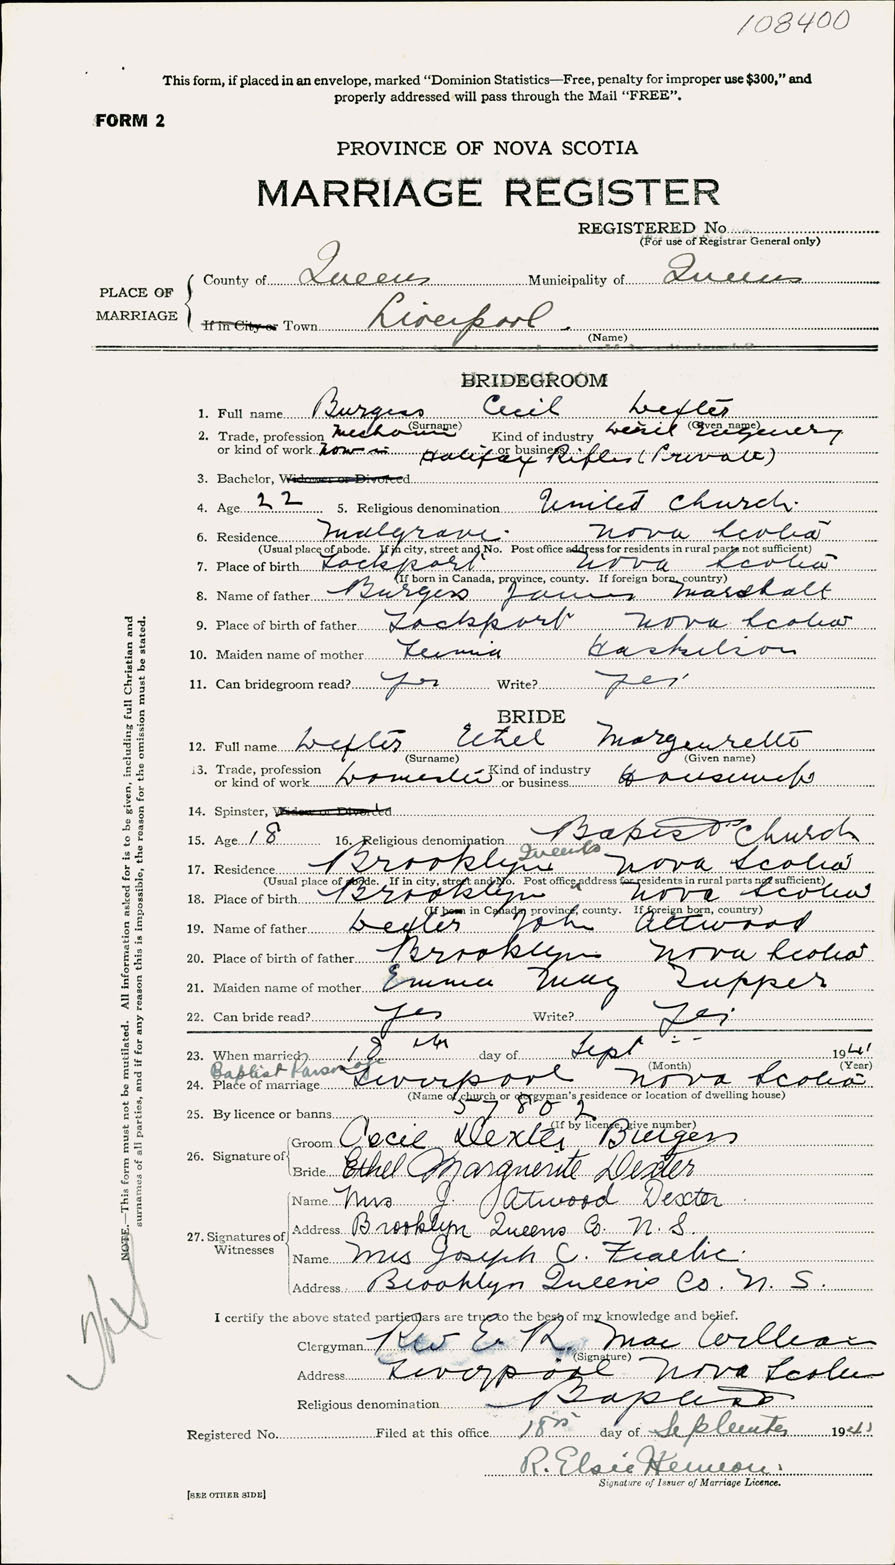 108400
This form, if placed in an envelope, marked "Dominion Statistics—Free, penalty for improper use $300," and
properly addressed will pass through the Mail "FREE".
FORM 2
PROVINCE OF NOVA SCOTIA
MARRIAGE REGISTER
REGISTERED No
(For use of Registrar General only)
PLACE OF MARRIAGE
County of Queens Municipality of Queens
If in City or Town Liverpool
(Name)
BRIDEGROOM
1. Full name Burgess Cecil Dexter
(Surname) (Given name)
2. Trade, profession or kind of work Mechanic now in Kind of industry or business
Halifax Rifles (Private)
3. Bachelor, Widower or Divorced
4. Age 22 5. Religious denomination United Church
6. Residence Mulgrave Nova Scotia
(Usual place of abode. If in city, street and No. Post office address for residents in rural parts not sufficient)
7. Place of birth Lockport Nova Scotia
(If born in Canada, province, county. If foreign born, country)
8. Name of father Burgess James Marshall
9. Place of birth of father Lockport Nova Scotia
10. Maiden name of mother
11. Can bridegroom read? yes Write? yes
BRIDE
12. Full name Dexter Ethel Marguerette
(Surname) (Given name)
13. Trade, profession or kind of work Domestic Kind of industry or business Housewife
14. Spinster, Widow or Divorced
15. Age 18 16. Religious denomination Baptist Church
17. Residence Brooklyn Queens Nova Scotia
(Usual place of abode. If in city, street and No. Post office address for residents in rural parts not sufficient)
18. Place of birth Brooklyn Nova Scotia
(If born in Canada, province, county. If foreign born, country)
19. Name of father Dexter John Attwood
20. Place of birth of father Brooklyn Nova Scotia
21. Maiden name of mother Emma May Tupper
22. Can bride read? yes Write? yes
23. When married 18th day of Sept 1941
(Month) (Year)
Baptist Parsonage
24. Place of marriage Liverpool Nova Scotia
(Name of church or clergyman's residence or location of dwelling house)
25. By licence or banns 57802
(If by license, give number)
26. Signature of Groom Cecil Dexter Burgess
Bride Ethel Marguerite Dexter
27. Signatures of Witnesses
Name Mrs J. Atwood Dexter
Address Brooklyn Queens Co. N. S.
Name Mrs Joseph C.
Address Brooklyn Queens Co. N. S.
I certify the above stated particulars are true to the best of my knowledge and belief.
Clergyman Rev E. R. MacWilliam
(Signature)
Address Liverpool Nova Scotia
Religious denomination Baptist
Registered No. Filed at this office 18th day of September 1941
R. Elsie
Signature of Issuer of Marriage Licence.
[SEE OTHER SIDE]
NOTE.—This form must not be mutilated. All information asked for is to be given, including full Christian and
surnames of all parties, and if for any reason this is impossible, the reason for the omission must be stated.